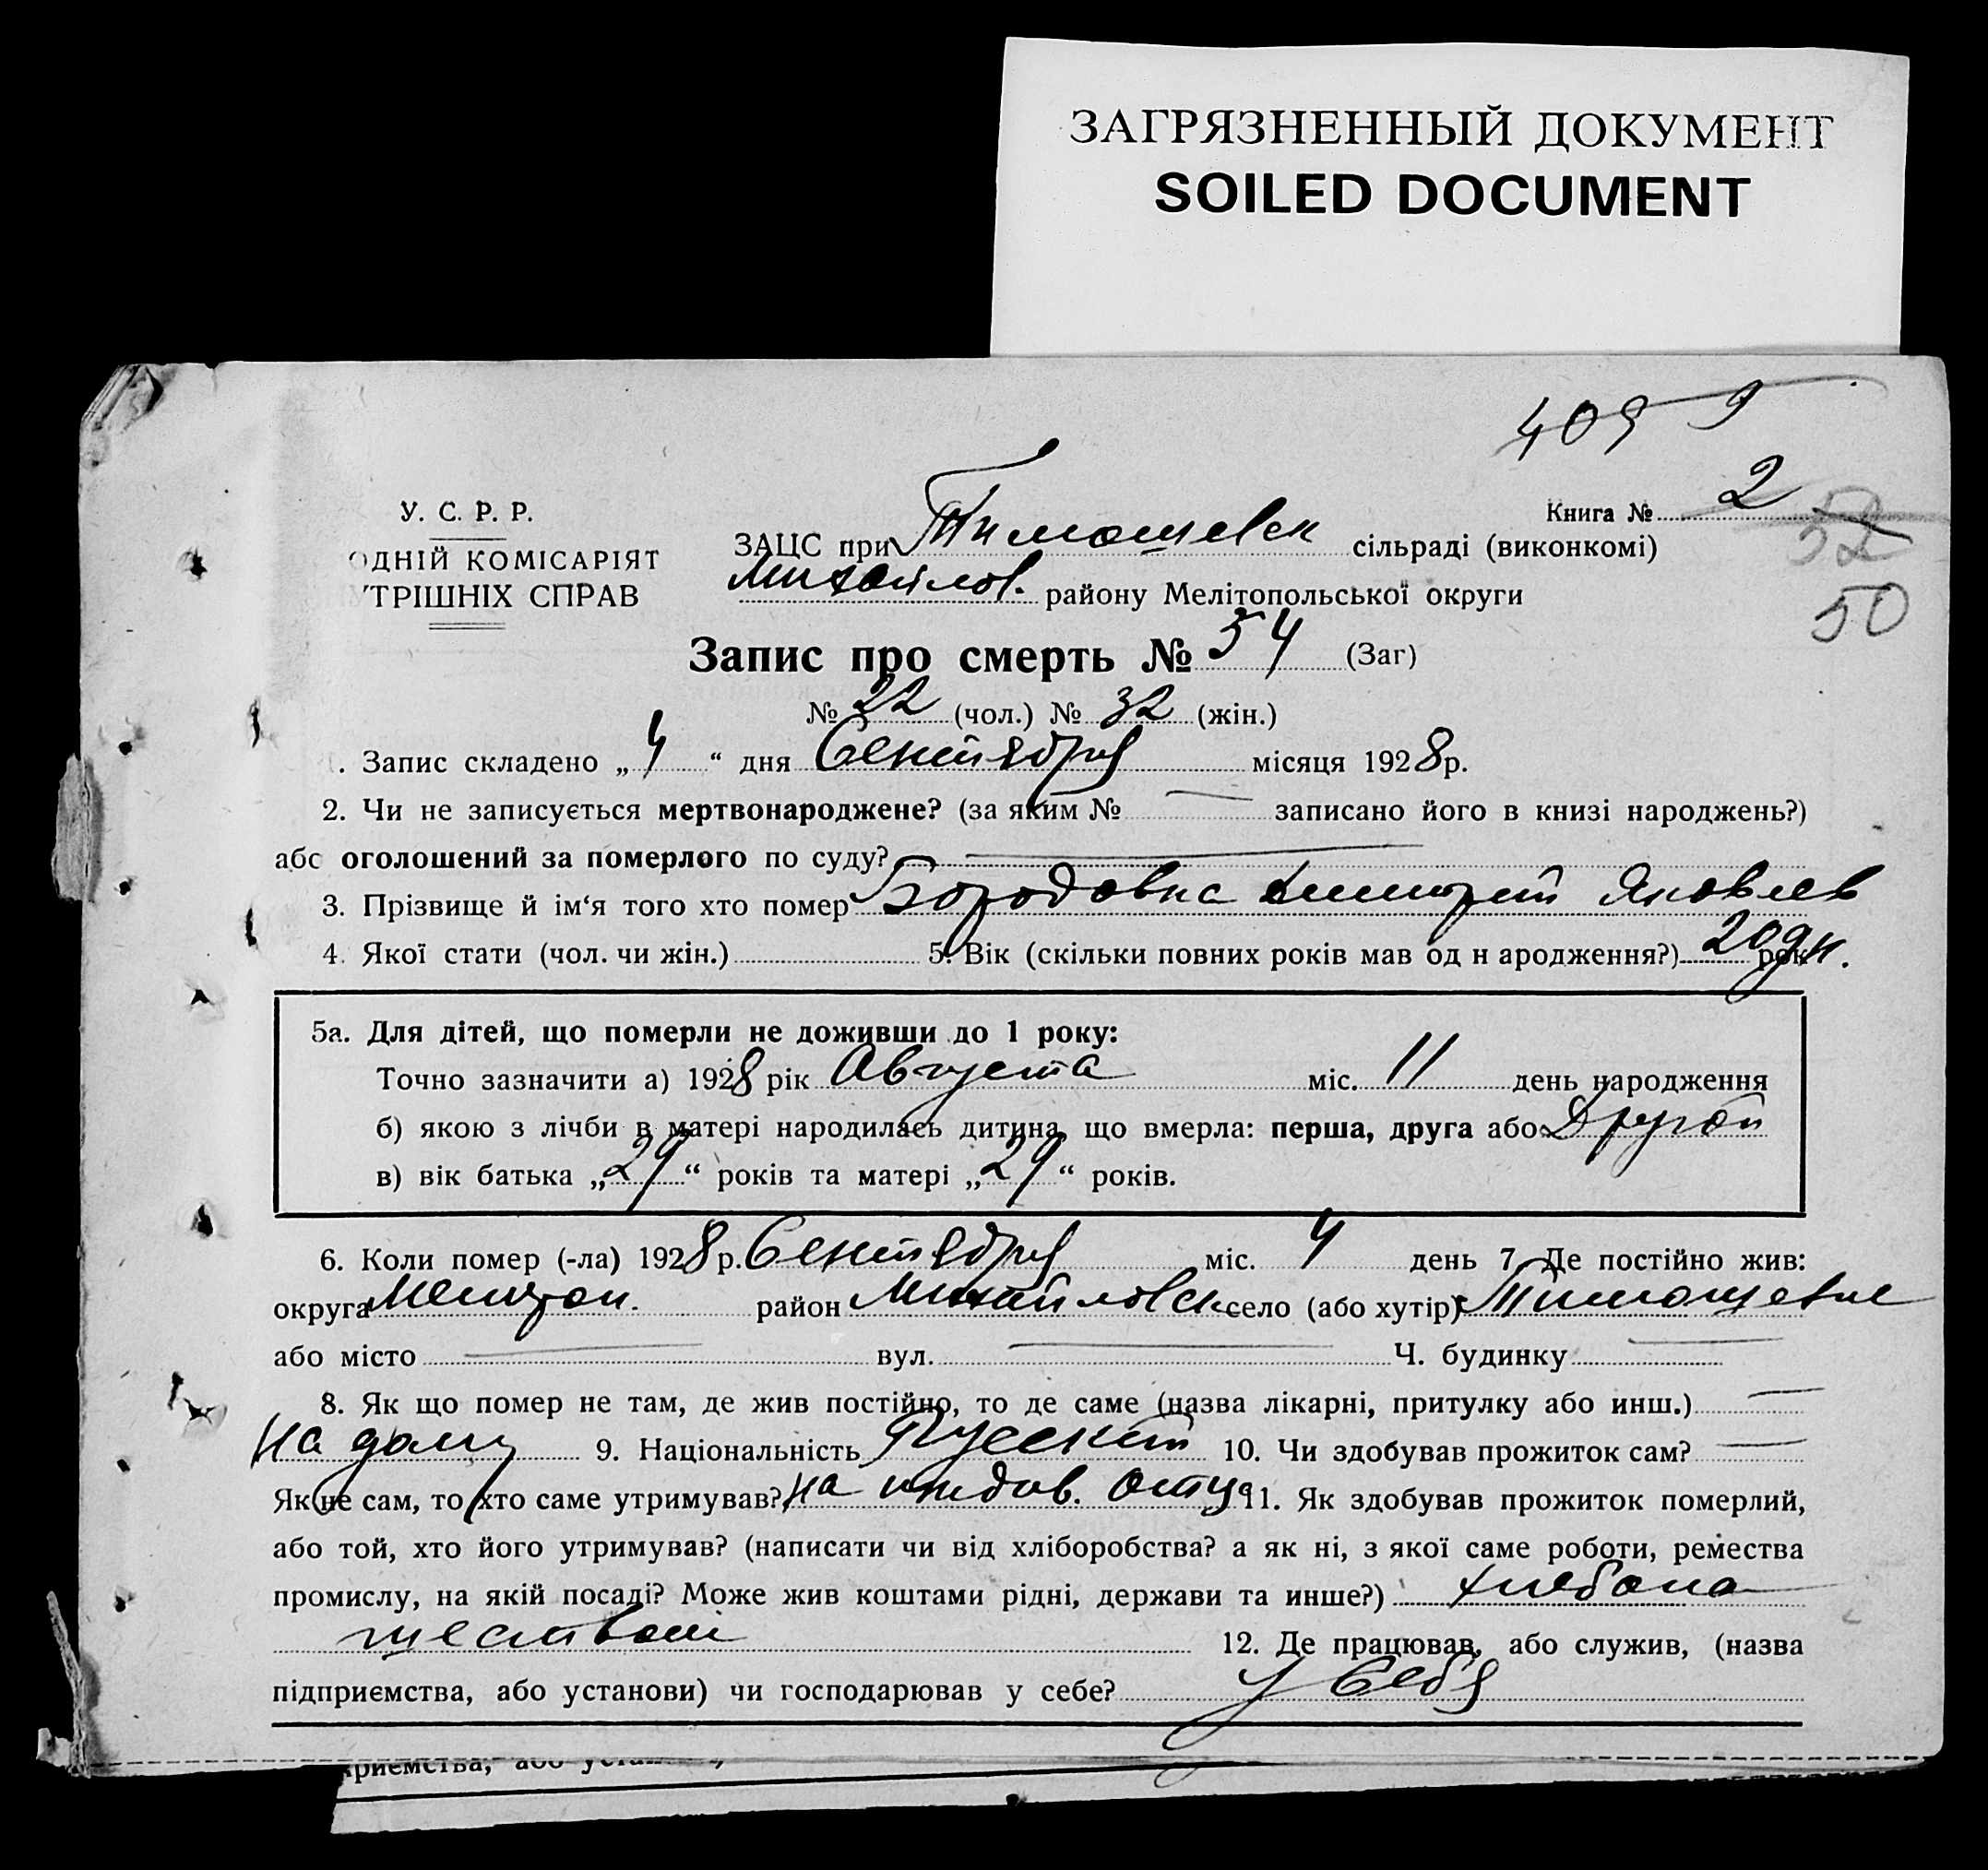 ЗАГРЯЗНЕННЫЙ ДОКУМЕНТ
SOILED DOCUMENT
409
Книга № 2
52
50
У. С. Р. Р.
ОДНІЙ КОМІСАРІЯТ
УТРІШНІХ СПРАВ
ЗАЦС при Тимошевск сільраді (виконкомі)
Михайлов. району Мелітопольської округи
Запис про смерть № 54 (Заг)
№ 22 (чол.) № 32 (жін.)
. Запис складено „ 4 “ дня Сентября місяця 1928 р.
2. Чи не записується мертвонароджене? (за яким № — записано його в книзі народжень?)
або оголошений за померлого по суду? —
3. Прізвище й ім‘я того хто помер Бородовка Дмитрий Яковлев
4. Якої стати (чол. чи жін.) 5. Вік (скільки повних років мав од н ародження?) 20 дн. рок
5а. Для дітей, що померли не доживши до 1 року:
Точно зазначити а) 1928 рік Августа міс. 11 день народження
б) якою з лічби в матері народилась дитина, що вмерла: перша, друга або Другой
в) вік батька „ 29 “ років та матері „ 29 “ років.
6. Коли помер (-ла) 1928 р. Сентября міс. 4 день 7. Де постійно жив:
округа Мелитоп. район Михайловск село (або хутір) Тимошевке
або місто — вул. — Ч. будинку —
8. Як що помер не там, де жив постійно, то де саме (назва лікарні, притулку або инш.) —
На дому 9. Національність Русский 10. Чи здобував прожиток сам? —
Як не сам, то хто саме утримував? На иждив. Отца 11. Як здобував прожиток померлий,
або той, хто його утримував? (написати чи від хліборобства? а як ні, з якої саме роботи, ремества
промислу, на якій посаді? Може жив коштами рідні, держави та инше?) хлебопа
шеством 12. Де працював, або служив, (назва
підприємства, або установи) чи господарював у себе? У Себя
приємства, або установи,